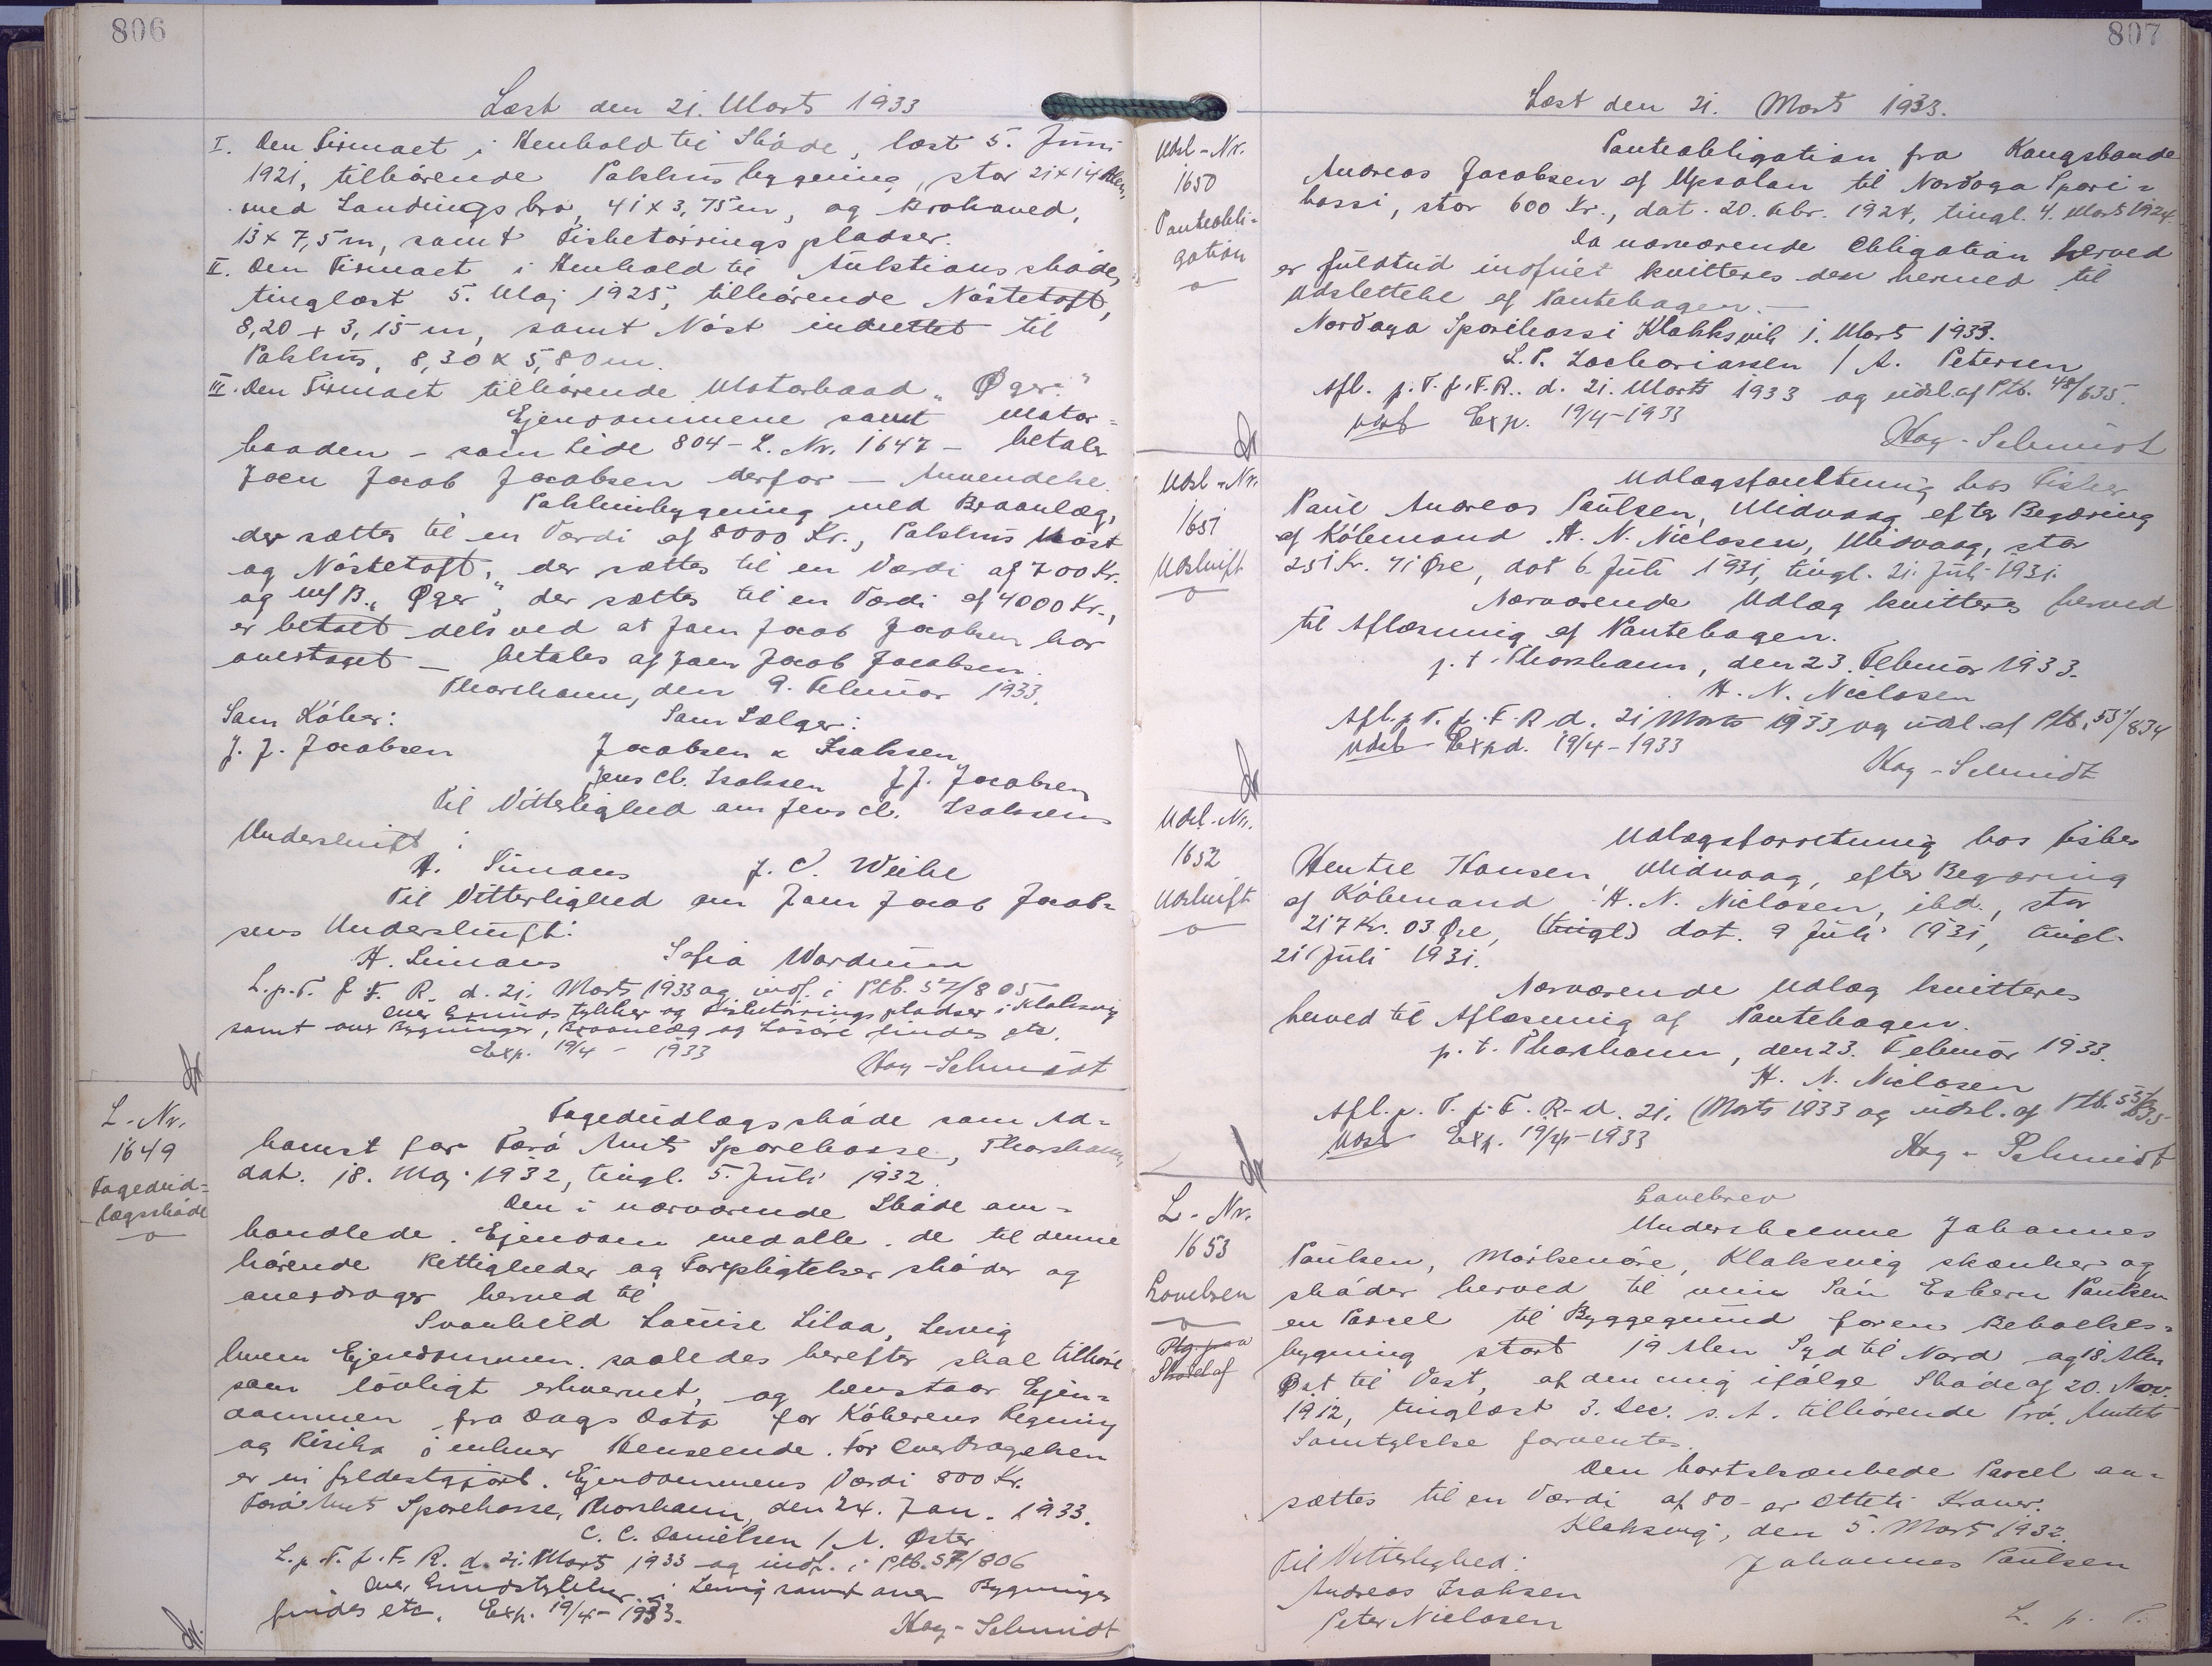 806
Læst den 21. Marts 1933
I. Den Firmaet i Henhold til Skøde, læst 5. Juni
1921, tilhørende Pakhusbygning, stor 21 x 14 Alen,
med Landingsbro, 41 x 3,75 m, og Brohoved,
13 x 7,5 m, samt Fisketørringspladser.
II. Den Firmaet i Henhold til Auktionsskøde,
tinglæst 5. Maj 1925, tilhørende Nøstetoft,
8,20 x 3,15 m, samt Nøst indrettet til
Pakhus, 8,30 x 5,80 m.
III. Den Firmaet tilhørende Motorbaad "Øger."
Ejendommene samt Motor=
baaden - som Side 804 - L. Nr. 1647 - betaler
Joen Jacob Jacobsen derfor - Anvendelse.
Pakhusbygning med Broanlæg,
der sættes til en Værdi af 8000 Kr., Pakhus Nøst
og Nøstetoft, der sættes til en Værdi af 700 Kr.
og M/B. "Øger", der sættes til en Værdi af 4000 Kr.,
er betalt dels ved at Joen Jacob Jacobsen har
overtaget - betales af Joen Jacob Jacobsen.
Thorshavn, den 9. Februar 1933.
Som Køber: Som Sælger:
J. J. Jacobsen Jacobsen & Isaksen
Jens Cl. Isaksen J. J. Jacobsen
Til Vitterlighed om Jens Cl. Isaksens
Underskrift:
H. Simans J. C. Weihe
Til Vitterlighed om Joen Jacob Jacob=
sens Underskrift:
H. Simans Sofia Wardum
L. p. T. f. F. R. d. 21. Marts 1933 og indf. i Ptb. 57/805
over Grundstykker og Fisketørringspladser i Klaksvig
samt over Bygninger, Broanlæg og Løsøre findes etc.
Exp. 19/4 - 1933
Kag-Schmidt
L. Nr.
1649
Fogedud=
lægsskøde
Fogedudlægsskøde som Ad=
komst for Færø Amts Sparekasse, Thorshavn,
dat. 18. Maj 1932, tingl. 5. Juli 1932
Den i nærværende Skøde om=
handlede Ejendom med alle de til denne
hørende Rettigheder og Forpligtelser skøder og
overdrager herved til
Svanhild Louise Lilaa, Lervig
hvem Ejendommen saaledes herefter skal tilhøre
som lovligt erhvervet, og henstaar Ejen=
dommen fra Dags Dato for Køberens Regning
og Risiko i enhver Henseende. For Overdragelsen
er vi fyldestgjort. Ejendommens Værdi 800 Kr.
Færø Amts Sparekasse, Thorshavn, den 24. Jan. 1933.
C. C. Danielsen / M. Øster
L. p. T. f. F. R. d. 21. Marts 1933 og indf. i Ptb. 57/806
over Grundstykker i Lervig samt over Bygninger
findes etc. Exp. 19/4 - 1933.
Kag-Schmidt
807
Læst den 21. Marts 1933.
Udsl-Nr.
1650
Panteobli=
gation
Panteobligation fra Kongsbonde
Andreas Jacobsen af Uppsalan til Norðoya Spari=
kassi, stor 600 Kr., dat. 20. Febr. 1924, tingl. 4. Marts 1924.
Da nærværende Obligation herved
er fuldtud indfriet kvitteres den herved til
Udslettelse af Pantebogen.-
Norðoya Sparikassi Klakksvik 1. Marts 1933.
L. P. Zachariassen / A. Petersen
Afl. p. T. f. F. R. d. 21. Marts 1933 og udsl. af Ptb. 48/635.
Udsl Exp. 19/4 - 1933
Kag-Schmidt
Udsl-Nr.
1651
Udskrift
Udlægsforretning hos Fisker
Paul Andreas Paulsen, Midvaag, efter Begæring
af Købmand H. N. Niclasen, Midvaag, stor
251 Kr. 41 Øre, dat 6. Juli 1931, tingl. 21. Juli 1931.
Nærværende Udlæg kvitteres herved
til Aflæsning af Pantebogen.
p. t. Thorshavn, den 23. Februar 1933.
H. N. Niclasen
Afl. p. T. f. F. R. d. 21 Marts 1933 og udsl. af Ptb. 55/834
Udsl Expd. 19/4 - 1933
Kag-Schmidt
Udsl-Nr.
1652
Udskrift
Udlægsforretning hos Fisker
Hentze Hansen, Midvaag, efter Begæring
af Købmand H. N. Niclasen, ibd., stor
217 Kr. 03 Øre, (tingl) dat. 9 Juli 1931, tingl.
21 Juli 1931.
Nærværende Udlæg kvitteres
herved til Aflæsning af Pantebogen.
p. t. Thorshavn, den 23. Februar 1933.
H. N. Niclasen
Afl. p. T. f. F. R. d. 21. Marts 1933 og udsl. af Ptb. 55/835
Udsl Exp. 19/4 - 1933
Kag-Schmidt
L. Nr.
1653
Gavebrev
Skødet af
Gavebrev
Underskrevne Johannes
Paulsen, Mørkenøre, Klaksvig skænker og
skøder herved til min Søn Esbern Paulsen
en Parcel til Byggegrund for en Beboelses=
bygning stort 19 Alen Syd til Nord og 18 Alen
Øst til Vest, af den mig ifølge Skøde af 20. Nov.
1912, tinglæst 3. Dec. s. A. tilhørende Trø. Amtets
Samtykke forventes.
Den bortskænkede Parcel an=
sættes til en Værdi af 80 - er Otteti Kroner.
Klaksvig, den 5. Marts 1932
Til Vitterlighed: Johannes Paulsen
Andreas Isaksen
Peter Niclasen
L. p. T.